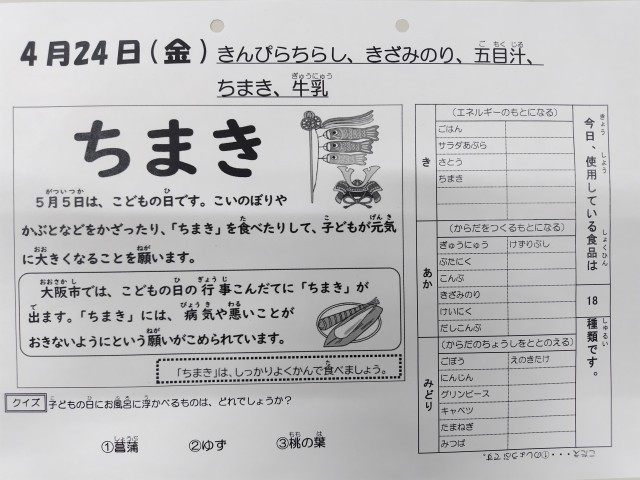 4月24日(金) きんぴらちらし、きざみのり、五目汁、
ちまき、牛乳
ちまき
5月5日は、こどもの日です。こいのぼりや
かぶとなどをかざったり、「ちまき」を食べたりして、子どもが元気
に大きくなることを願います。
大阪市では、こどもの日の行事こんだてに「ちまき」が
出ます。「ちまき」には、病気や悪いことが
おきないようにという願いがこめられています。
「ちまき」は、しっかりよくかんで食べましょう。
クイズ 子どもの日にお風呂に浮かべるものは、どれでしょうか?
①菖蒲 ②ゆず ③桃の葉
き
(エネルギーのもとになる)
ごはん
サラダあぶら
さとう
ちまき
あか
(からだをつくるもとになる)
ぎゅうにゅう けずりぶし
ぶたにく
こんぶ
きざみのり
けいにく
だしこんぶ
みどり
(からだのちょうしをととのえる)
ごぼう えのきたけ
にんじん
グリンピース
キャベツ
たまねぎ
みつば
今日、使用している食品は
18
種類です。
こたえ・・・①のしょうぶです。